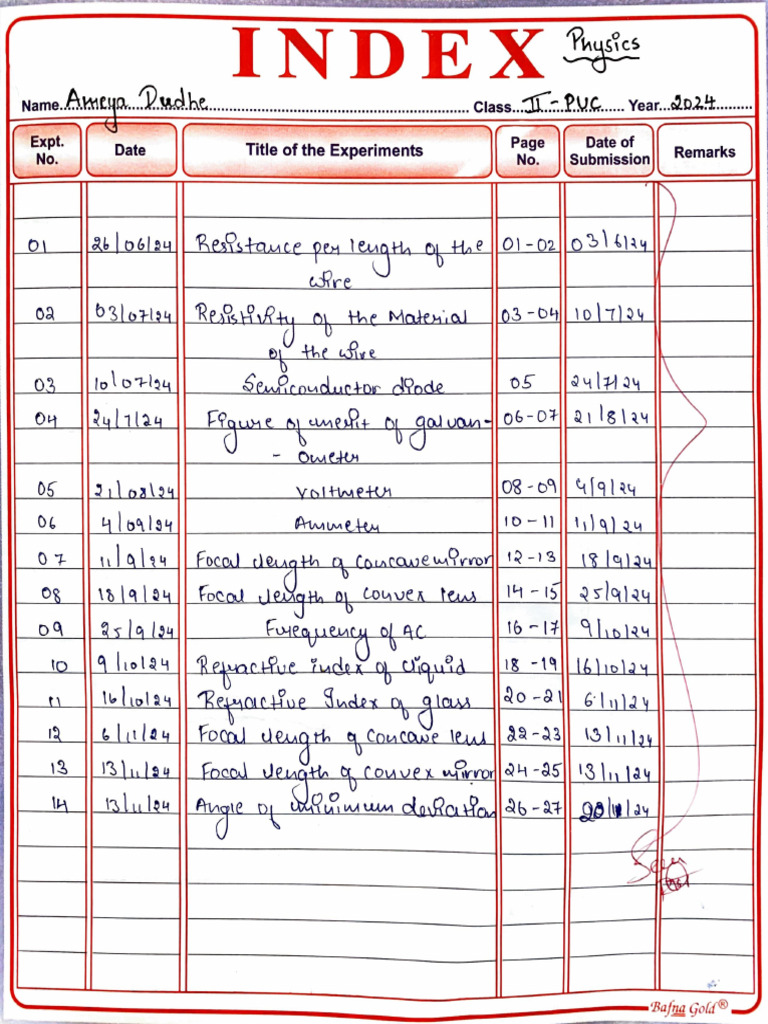 INDEX Physics
Name Ameya Dudhe Class II - PUC Year 2024
Expt. No. Date Title of the Experiments Page No. Date of Submission Remarks
01 26/06/24 Resistance per length of the 01-02 03/6/24
wire
02 03/07/24 Resistivity of the Material 03-04 10/7/24
of the wire
03 10/07/24 Semiconductor diode 05 24/7/24
04 24/7/24 Figure of merit of galvan- 06-07 21/8/24
- Ometer
05 21/08/24 Voltmeter 08-09 4/9/24
06 4/09/24 Ammeter 10-11 11/9/24
07 11/9/24 Focal length of concave mirror 12-13 18/9/24
08 18/9/24 Focal length of convex lens 14-15 25/9/24
09 25/9/24 Frequency of AC 16-17 9/10/24
10 9/10/24 Refractive index of liquid 18-19 16/10/24
11 16/10/24 Refractive Index of glass 20-21 6/11/24
12 6/11/24 Focal length of concave lens 22-23 13/11/24
13 13/11/24 Focal length of convex mirror 24-25 13/11/24
14 13/11/24 Angle of minimum deviation 26-27 20/11/24
Seen
Bafna Gold®